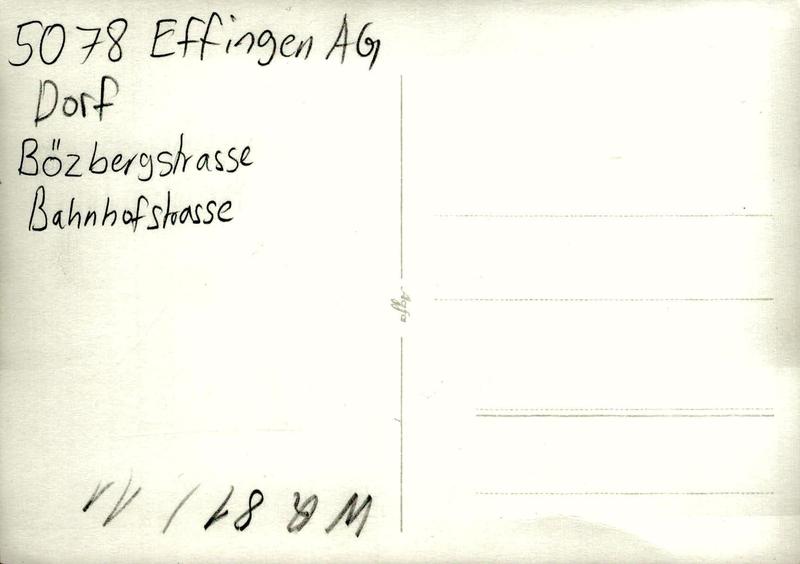 5078 Effingen AG
Dorf
Bözbergstrasse
Bahnhofstrasse
Agfa